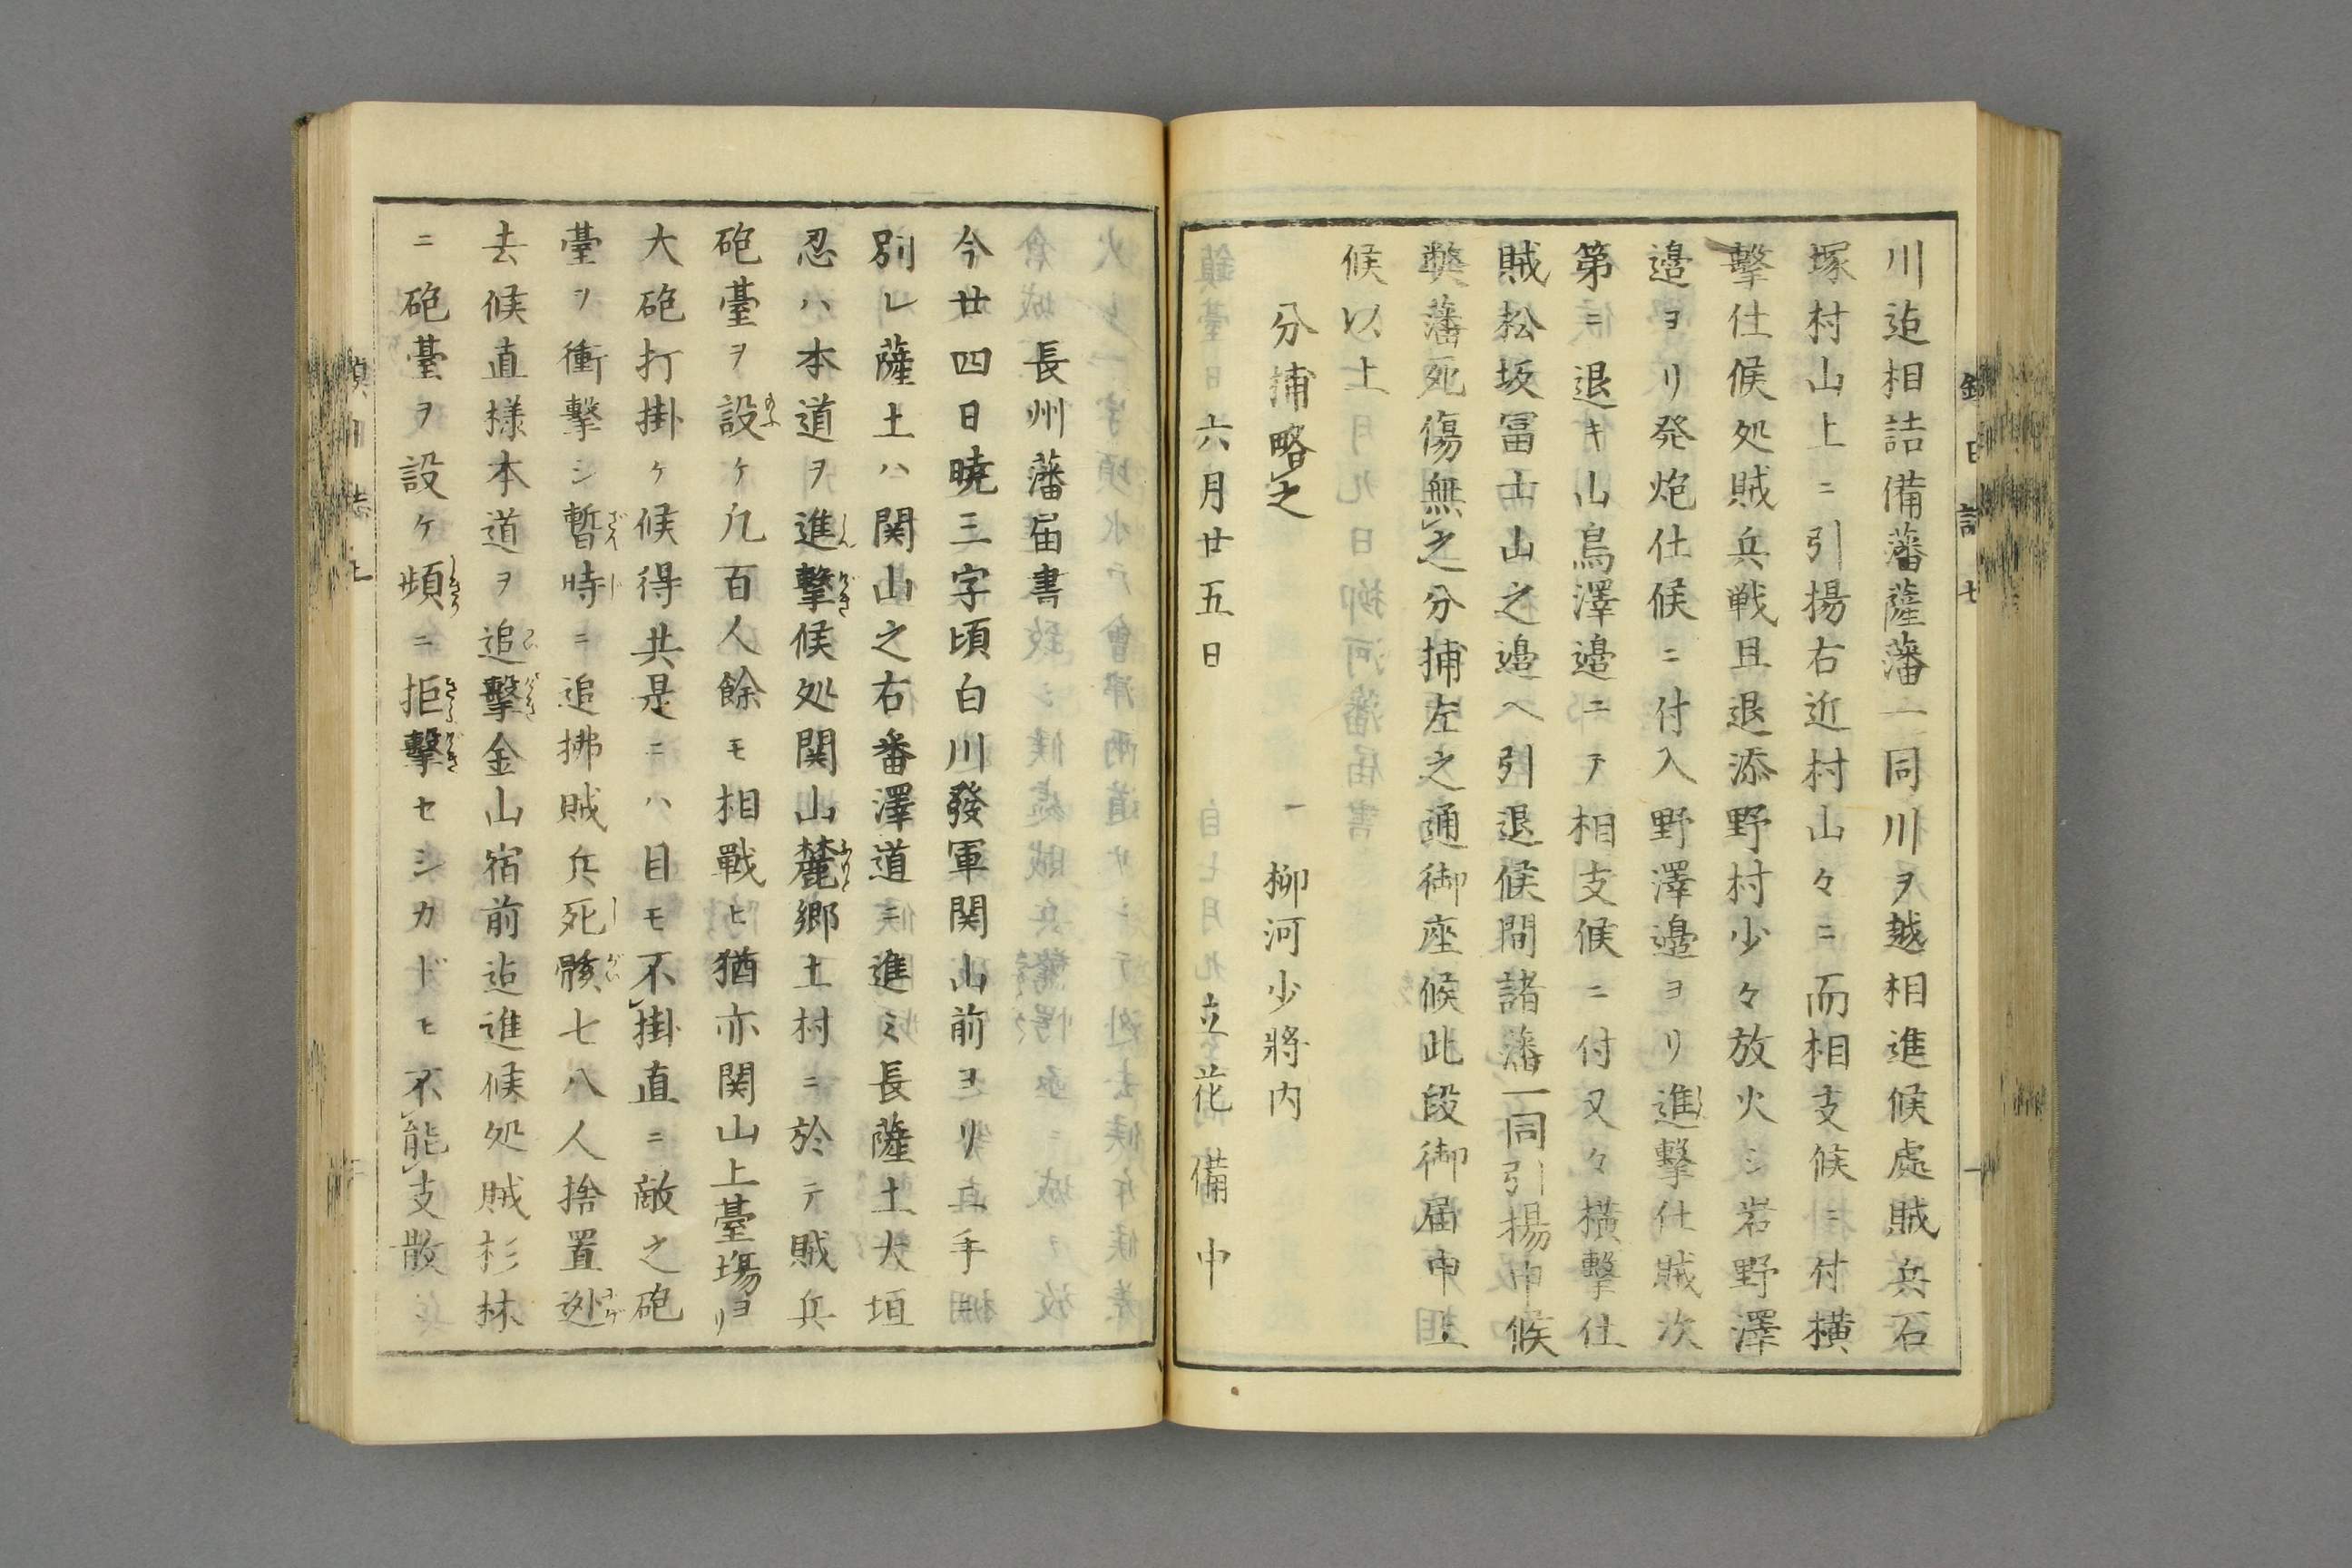 川迠相詰備藩薩藩一同川ヲ越相進候處賊兵石
塚村山上ニ引揚右近村山々ニ而相支候ニ付横
擊仕候処賊兵戦且退添野村少々放火シ岩野澤
邉ヨリ発炮仕候ニ付入野澤邉ヨリ進擊仕賊次
第ニ退キ山鳥澤邉ニテ相支候ニ付又々横擊仕
賊松坂冨士山之邉ヘ引退候間諸藩一同引揚申候
弊藩死傷無之分捕左之通御座候此段御届申上
候以上
分捕略之
柳河少將内
六月廿五日 立花備中
長州藩届書
今廿四日暁三字頃白川發軍関山前ヨリ二手ニ
別レ薩土ハ関山之右番澤道ニ進ミ長薩土大垣
忍ハ本道ヲ進擊候処関山麓郷土村ニ於テ賊兵
砲臺ヲ設ケ凢百人餘モ相戰ヒ猶亦関山上臺塲ヨリ
大砲打掛ケ候得共是ニハ目モ不掛直ニ敵之砲
臺ヲ衝擊シ暫時ニ追拂賊兵死骸七八人捨置迯
去候直様本道ヲ追擊金山宿前迠進候処賊杉林
ニ砲臺ヲ設ケ頻ニ拒擊セシカドモ不能支散